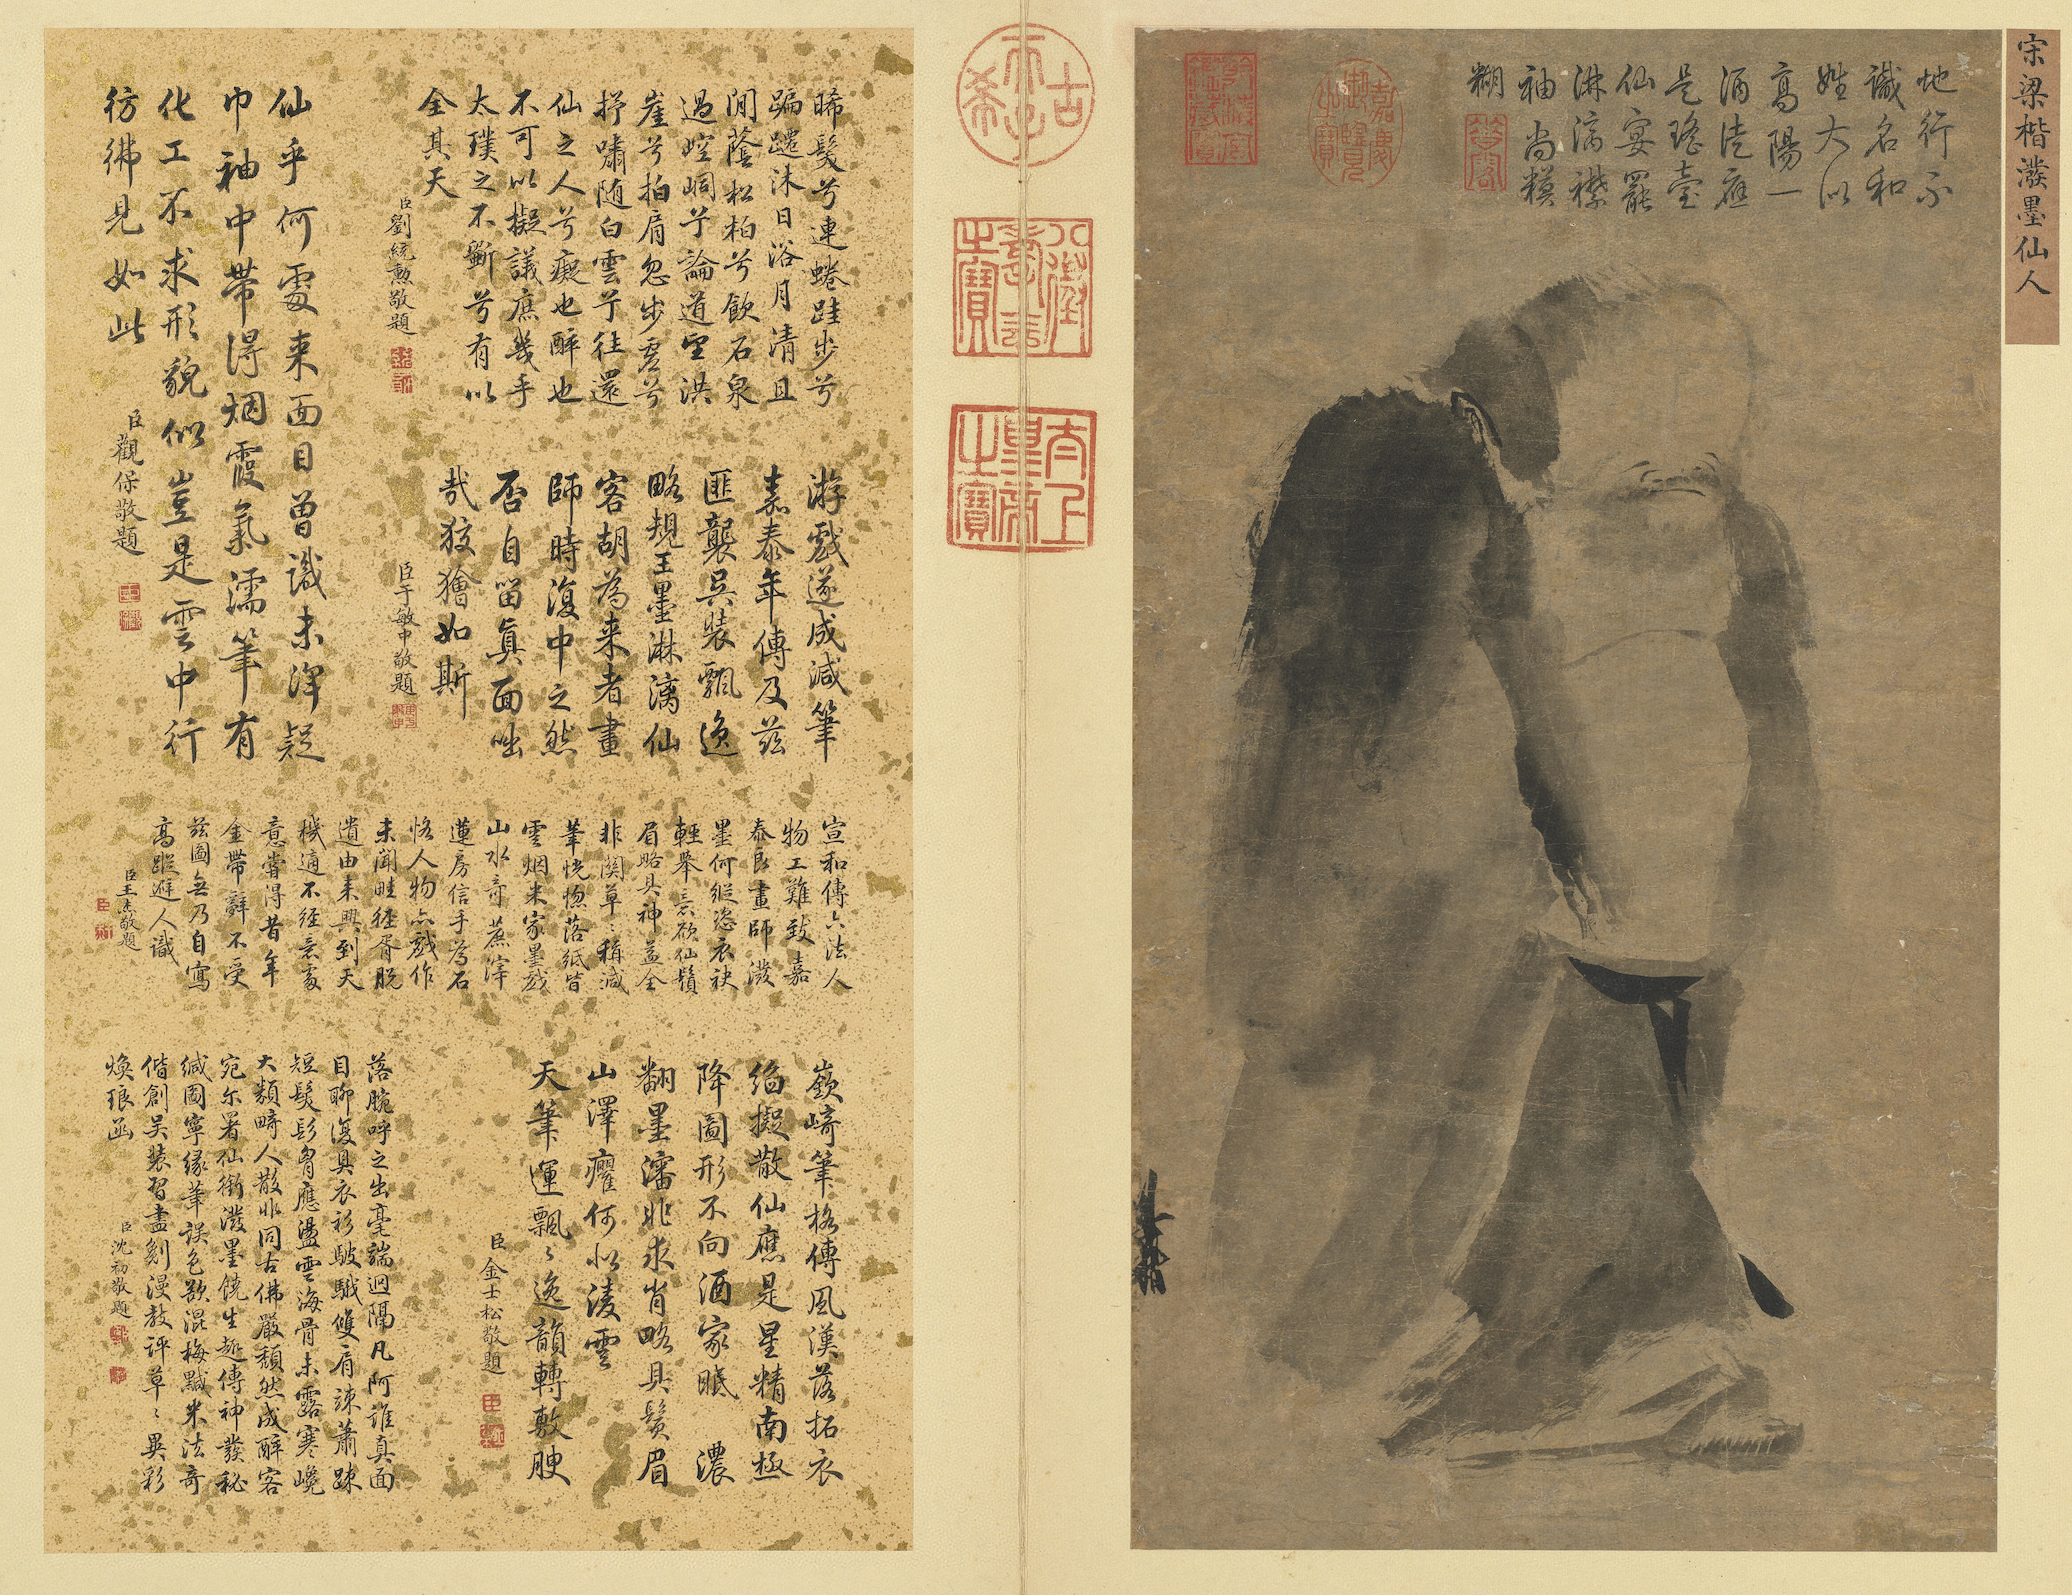 宋梁楷潑墨仙人
地行不
識名和
姓大似
高陽一
酒徒應
是瑤臺
仙宴罷
淋漓襟
袖尚模
糊
嘉慶御覽之寶
古希天子
八徵耄念之寶
太上皇帝之寶
晞髮兮連蜷跬步兮
蹁躚沐日浴月清且
閒蔭松柏兮飲石泉
過崆峒兮論道望洪
崖兮拍肩忽步虛兮
抒嘯隨白雲兮往還
仙之人兮癡也醉也
不可以擬議庶幾乎
太璞之不斲兮有以
全其天
臣劉統勳敬題
仙乎何處來面目曾識未渾疑
巾袖中帶得烟霞氣濡筆有
化工不求形貌似豈是雲中行
彷彿見如此
臣觀保敬題
游戲遂成減筆
嘉泰年傳及茲
匪襲吳裝飄逸
略規王墨淋漓仙
客胡為來者畫
師時復中之然
否自留真面咄
哉狡獪如斯
臣于敏中敬題
宣和傳六法人
物工難致嘉
泰良畫師潑
墨何縱恣衣袂
輕舉意欲仙鬚
眉略具神益全
非關草草稱減
筆恍惚落紙皆
雲烟米家墨戲
山水奇蕉滓
蓮房信手為石
恪人物亦戲作
未聞畦徑胥脫
遺由來興到天
機適不經意處
意嘗得昔年
金帶辭不受
茲圖無乃自寫
高蹤避人識
臣王杰敬題
嶔崎筆格傳風漢落拓衣
絛擬散仙應是星精南極
降圖形不向酒家眠　濃
翻墨瀋非求肖略具鬚眉
山澤癯何似淩雲
天筆運飄飄逸韻轉敷腴
臣金士松敬題
落腕呼之出毫端迥隔凡阿誰真面
目聊復具衣衫駊騀雙肩竦蕭疎
短髮髟胷應盪雲海骨未露寒巉
大類畸人散非同古佛嚴頹然成醉客
宛尔署仙銜潑墨饒生趣傳神發秘
緘圖寧緣筆誤色欲混梅黬米法奇
偕創吳裝習盡剗漫教評草草異彩
煥琅函
臣沈初敬題